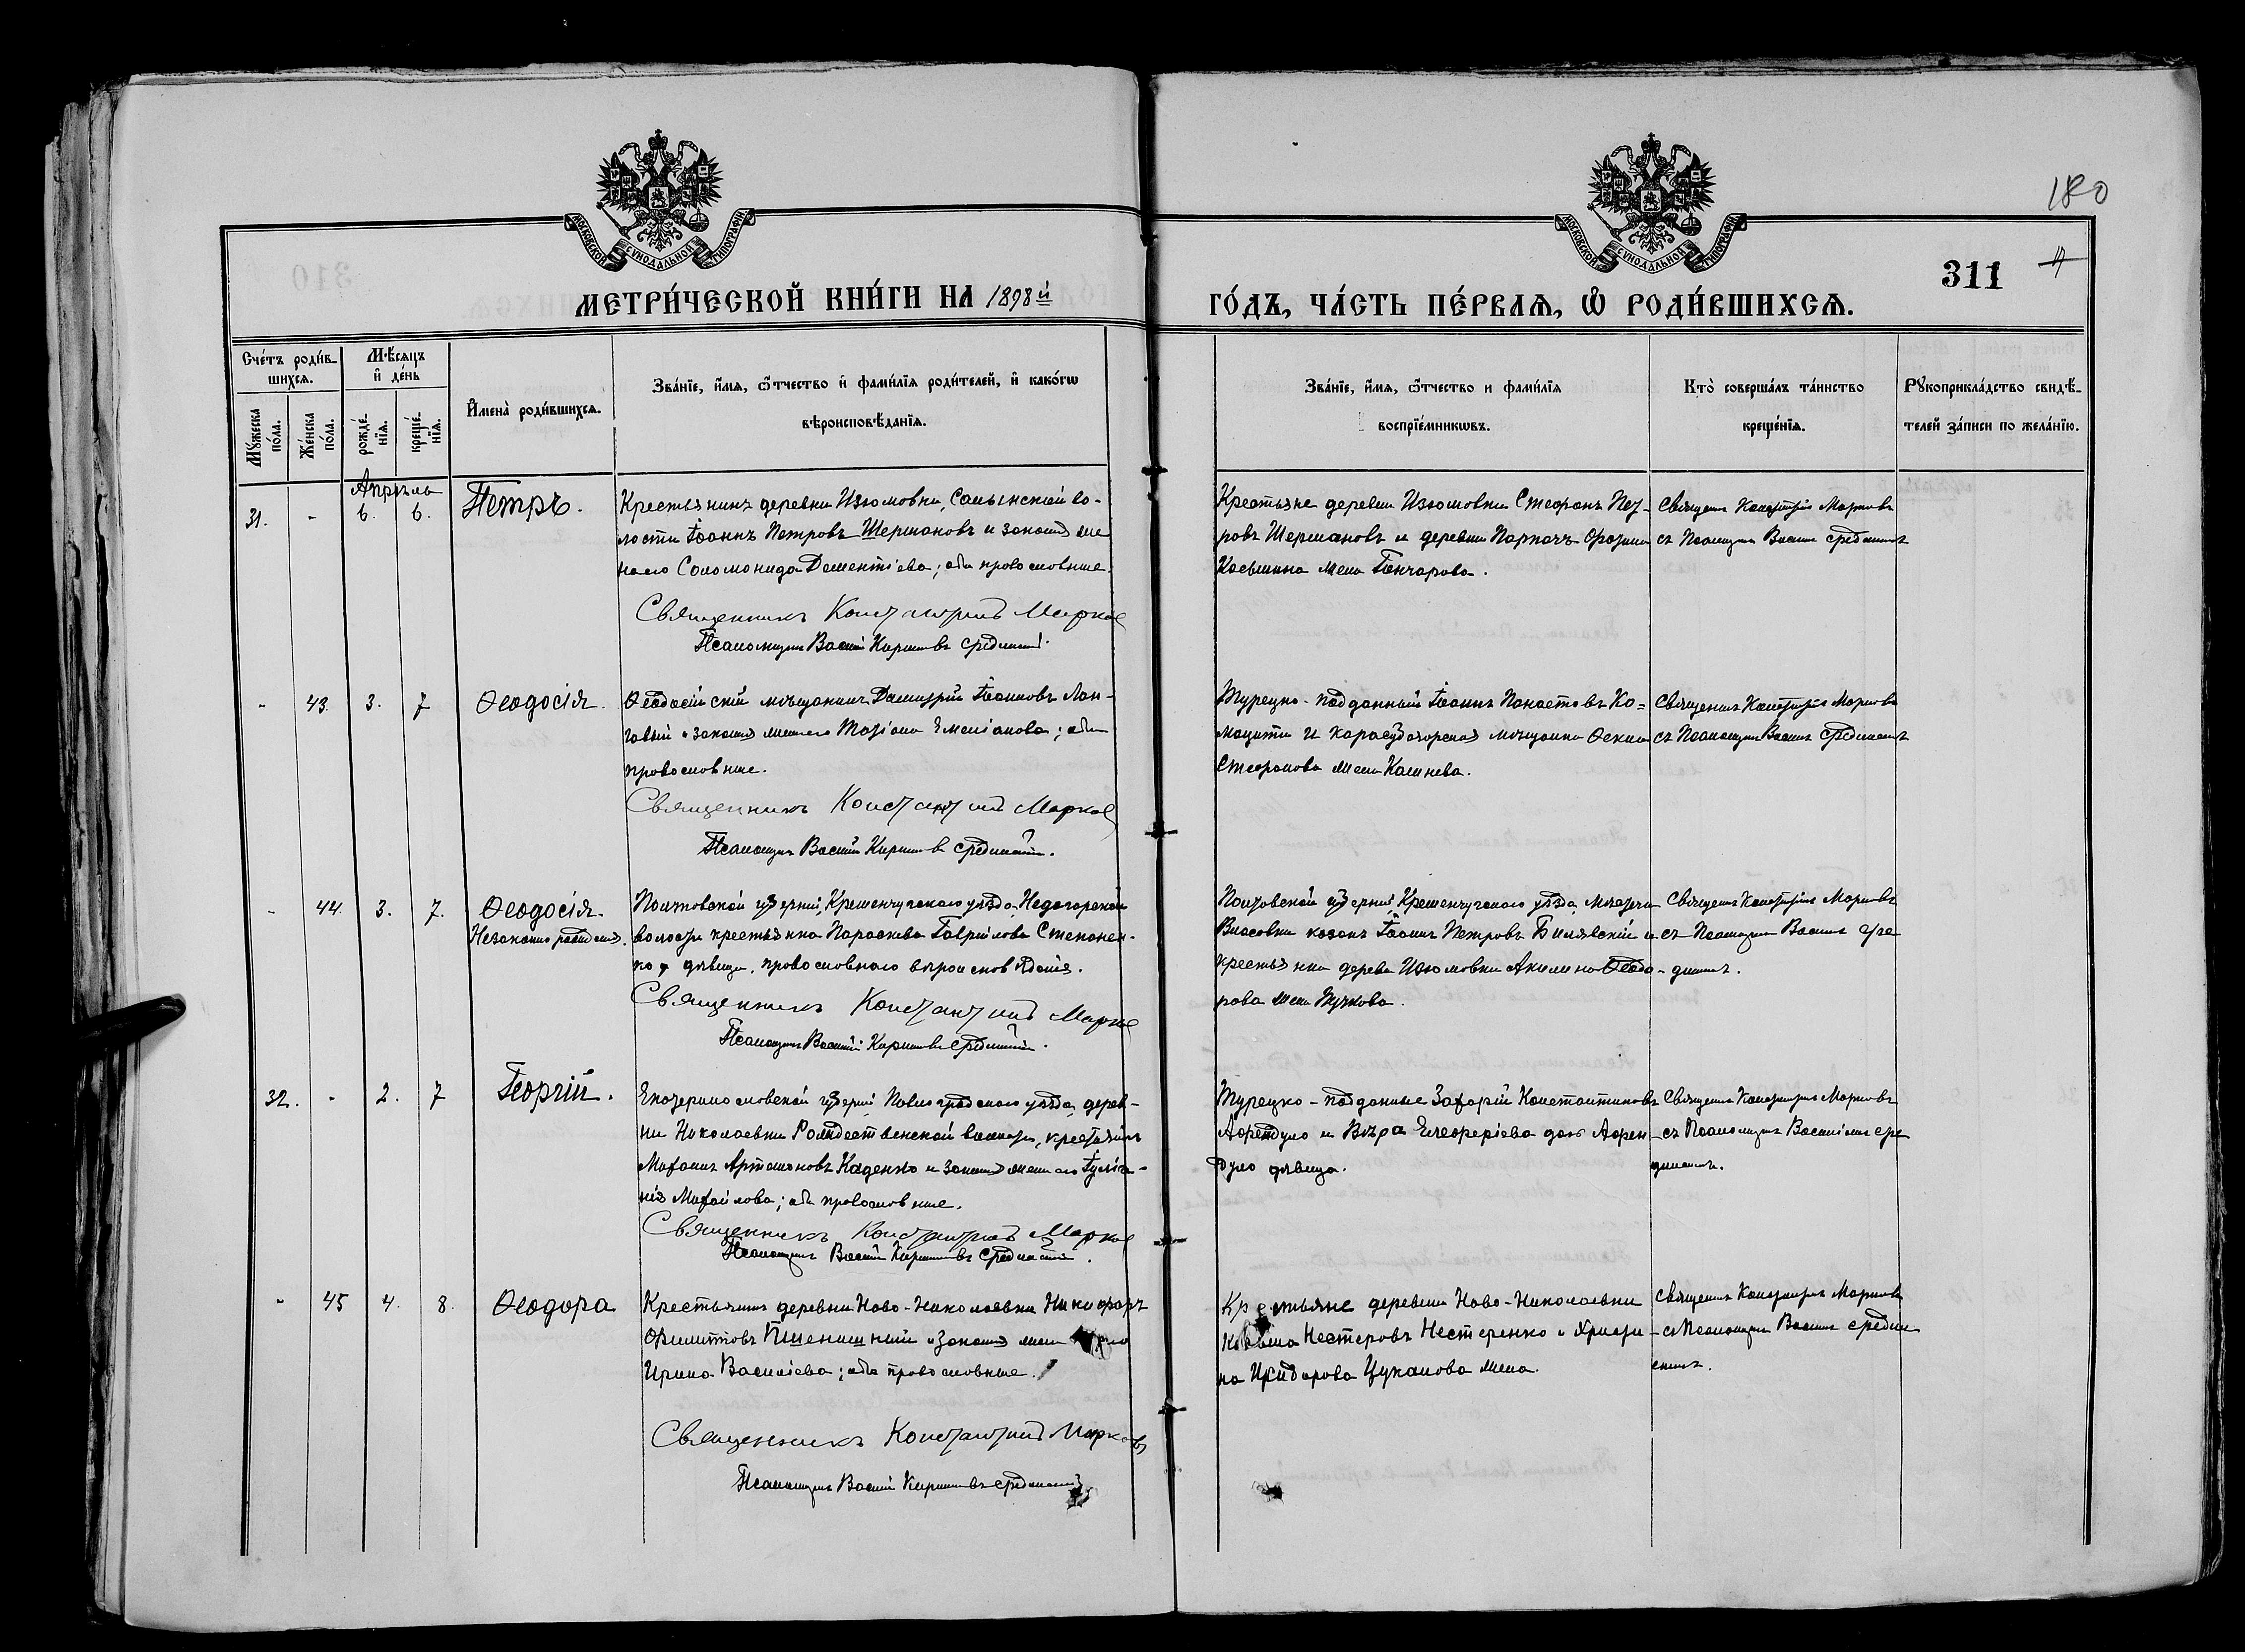 180
311
МОСКОВСКОЙ СѴНОДАЛЬНОЙ ТИПОГРАФІИ
МОСКОВСКОЙ СѴНОДАЛЬНОЙ ТИПОГРАФІИ
МЕТРИ́ЧЕСКОЙ КНИ́ГИ НА 1898й ГО́ДЪ, ЧА́СТЬ ПЕ́РВАѦ, Ѡ РОДИ́ВШИХСѦ.
Сче́тъ роди́в-
шихсѧ.
Мꙋ́жеска по́ла.
Же́нска по́ла.
Мѣ́сѧцъ и де́нь
рожде́-нїѧ.
креще́-нїѧ.
Имена̀ роди́вшихсѧ.
Зва́нїе, и́мѧ, ѻ́тчество и фами́лїѧ роди́телей, и како́гѡ
вѣроисповѣ́данїѧ.
Зва́нїе, и́мѧ, ѻ́тчество и фами́лїѧ
воспрїе́мникѡвъ.
Кто̀ соверша́лъ та́инство
креще́нїѧ.
Рꙋкоприкла́дство свидѣ́-
телей за́писи по жела́нїю.
Апрѣль
31. - 6. 6. Петръ.
Крестьянинъ деревни Изюмовки, Салынской во-
лости Іоаннъ Петровъ Шермановъ и законная же
на его Соломонида Дементіева; оба православные.
Священникъ Константинъ Марковъ
Псаломщикъ Василій Кирилловъ Срединскій.
Крестьяне деревни Изюмовки Стефанъ Пет-
ровъ Шермановъ и деревни Парпачъ
Косьмина жена Гончарова.
Священникъ Константинъ Марковъ
съ Псаломщикомъ Василіемъ Срединскимъ
- 43. 3. 7 Ѳеодосія.
Ѳеодосійскій мѣщанинъ Димитрій Іоанновъ Лон-
говый и законная жена его Татіана Емеліанова; оба
православные.
Священникъ Константинъ Марковъ
Псаломщикъ Василій Кирилловъ Срединскій.
Турецко-подданный Іоаннъ Панаетовъ Ко-
моцити и карасубазарская мѣщанка Ѳекла
Стефанова жена Калнева.
Священникъ Константинъ Марковъ
съ Псаломщикомъ Василіемъ Срединскимъ
- 44. 3. 7. Ѳеодосія.
Незаконно рожденная.
Полтавской губерніи, Кременчугскаго уѣзда, Недогарской
волости крестьянка Параскева Гаврилова Степанен-
ко дѣвица, православнаго вѣроисповѣданія.
Священникъ Константинъ Марковъ
Псаломщикъ Василій Кирилловъ Срединскій.
Полтавской губерніи Кременчугскаго уѣзда, мѣстечка
Власовки козакъ Іоаннъ Петровъ Билявскій и
крестьянка деревни Изюмовки Акилина Ѳеодо-
рова жена Пучкова.
Священникъ Константинъ Марковъ
съ Псаломщикомъ Василіемъ Сре
динскимъ.
32. - 2. 7 Георгій.
Екатеринославской губерніи Павлоградскаго уѣзда, дерев-
ни Николаевки Рождественской волости, крестьянинъ
Михаилъ Артамоновъ Каденко и законная жена его Іуліа-
нія Михайлова; оба православные.
Священникъ Константинъ Марковъ
Псаломщикъ Василій Кирилловъ Срединскій.
Турецко-подданные Захарій Константиновъ
Афендуло и Вѣра Елеоферіева дочь Афен-
дуло дѣвица.
Священникъ Константинъ Марковъ
съ Псаломщикомъ Василіемъ Сре
динскимъ.
- 45 4. 8. Ѳеодора
Крестьянинъ деревни Ново-Николаевки Никифоръ
Филиповъ Пшеничный и законная жена его
Ирина Василіева; оба православные.
Священникъ Константинъ Марковъ
Псаломщикъ Василій Кирилловъ Срединскій
Крестьяне деревни Ново-Николаевки
Косьма Нестеровъ Нестеренко и Христи-
на Исидорова Цуканова жена.
Священникъ Константинъ Марковъ
съ Псаломщикомъ Василіемъ Средин
скимъ.